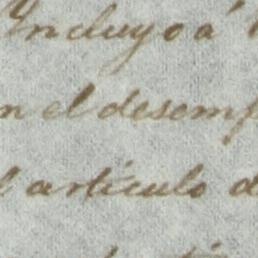 Incluyo á
en el desemp
l artículo d